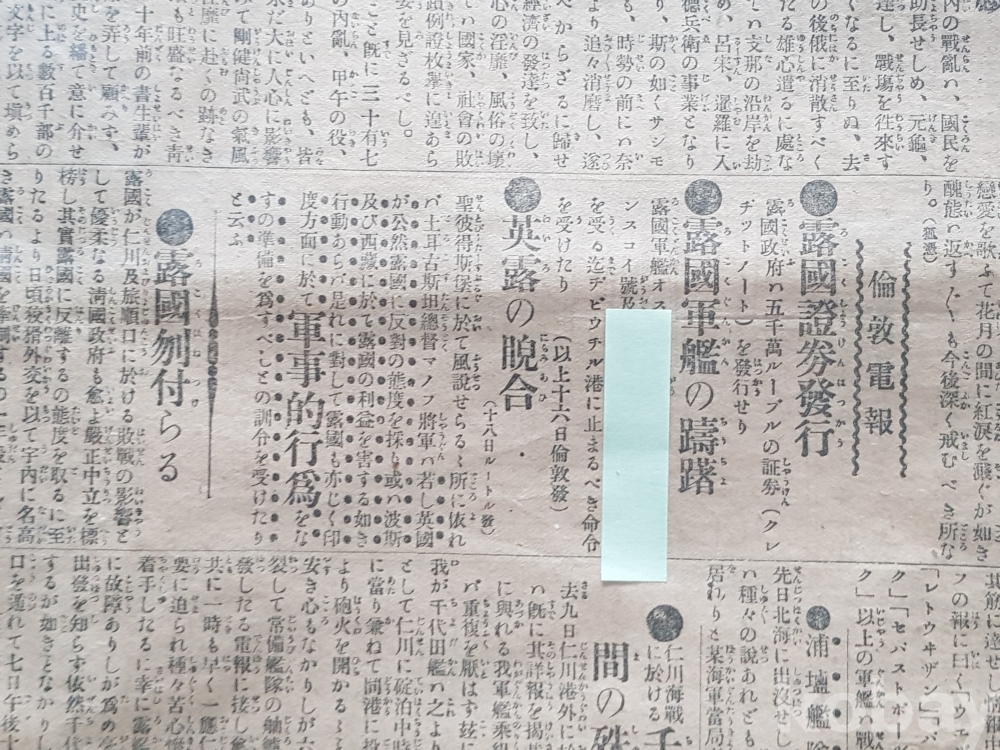 內の戰亂ハ、國民を
助長せしめ、元龜、
達し、戰塲を徃來す
くなるに至りぬ、去
の後俄に消散すべく
たる雄心遣るに處な
て支那の沿岸を劫
め、呂宋、暹羅に入
德兵衞の事業となり
り、斯の如くサシモ
も、時勢の前にハ奈
より追々消磨し、途
べからざるに歸せ
經濟の發達を致し、
心の淫靡、風俗の壞
て國家、社會の敗
類例證枚擧に遑あら
姿を見ざるべし。
旣に三十有七
の內亂、甲午の役、
ありといへども、皆
未だ大に人心に影響
て剛健尚武の氣風
靡に赴くの跡なき
も旺盛なるべき靑
十年前の書生輩が
を弄して顧みず、
史を繙て意に介せ
に上る數百千部の
文字を以て塡めら
戀愛を歌ふて花月の間に紅淚を濺ぐが如き
醜態ハ返す〲も今後深く戒むべき所な
り。(狐憑)
倫敦電報
●露國證券發行
露國政府ハ五千萬ルーブルの証券(クレ
ヂットノート)を發行せり
●露國軍艦の躊躇
露國軍艦オス
ンスコイ號及
を受る迄ヂビウチル港に止まるべき命令
を受けたり
(以上十六日倫敦發)
●英露の睨合
(十八日ルートル發)
聖彼得斯堡に於て風說せらるゝ所に依れ
バ土耳古斯坦總督マノフ將軍ハ若し英國
が公然露國に反對の態度を採り或ハ波斯
及び西藏に於て露國の利益を害する如き
行動あらバ是れに對して露國も亦じく印
度方面に於て軍事的行爲をな
すの準備を爲すべしとの訓令を受けたり
と云ふ
●露國刎付らる
露國が仁川及旅順口に於ける敗戰の影響と
して優柔なる淸國政府も愈よ嚴正中立を標
榜し其實露國に反離するの態度を取るに至
りたるより日頃狡猾外交を以て宇內に名高
き露國ハ淸國を牽制するの一
其筋に達せし情報
フの報に曰く「ウエ
「レトウヰザン」「パ
ク」「セバストポー
ク」以上の軍艦ハ戰
●浦壚艦隊
先日北海に出沒せし
ハ種々の說あれども
居れりと某海軍當局
●仁川海戰
に於ける千
間の
去九日仁川港外に於
ハ旣に其詳報を揭
に與れる我軍艦乘組
バ重複を厭はず玆に
我が千代田艦ハ之より
として仁川に碇泊中時
に當り兼ねて同港に投
より砲火を開かるゝ
安き心もなかりしが
裂して常備艦隊の舳艫
發したる電報に接し
共に一時も早く一應仁
要に迫られ種々苦心慘
着手したるに幸に露艦
に故障ありしが爲め
出發を知らず依然千代
するが如きとなかりし
口を遁れて七日午後